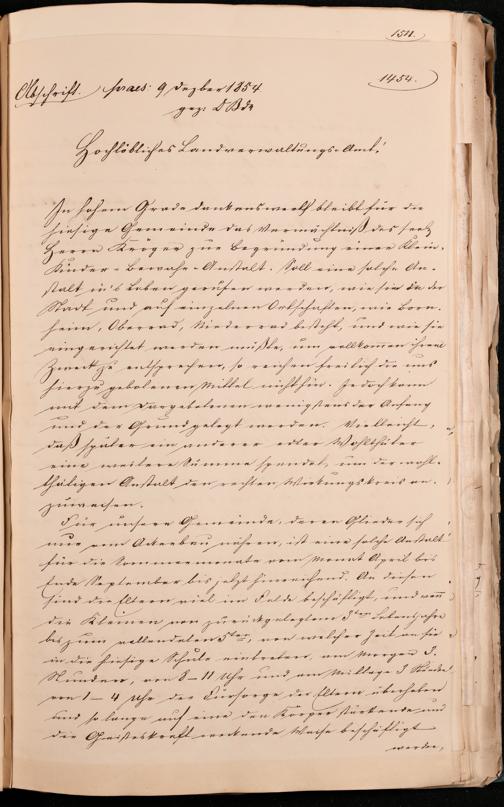 1511.
1454.
Abschrift. praes: 9 Dezber 1854
gez:
Hochlöbliches Landverwaltungs-Amt!
In hohem Grade dankenswerth bleibt für die
hiesige Gemeinde das Vermächtniß des seel.
Herrn Krüger zur Begründung einer Klein-
Kinder-Bewahr-Anstalt. Soll eine solche An-
stalt in's Leben gerufen werden, wie sie in der
Stadt und auf einzelnen Ortschaften, wie Born-
heim, Oberrad, Niederrad besteht, und wie sie
eingerichtet werden müßte, um vollkommen ihrem
Zweck zu entsprechen, so reichen freilich die uns
hierzu gebotenen Mittel nicht hin. Jedoch kann
mit dem Dargebotenen wenigstens der Anfang
und der Grund gelegt werden. Vielleicht,
daß später ein anderer edler Wohlthäter
eine weitere Summe spendet, um der wohl-
thätigen Anstalt den rechten Wirkungskreis an-
zuweisen.
Für unsere Gemeinde, deren Glieder sich
nur vom Ackerbau nähren, ist eine solche Anstalt
für die Sommermonate vom Monat April bis
Ende September bis jetzt hinreichend. In diesen
sind die Eltern viel im Felde beschäftigt, und wenn
die Kleinen von zurückgelegtem 3ten Lebensjahre
bis zum vollendeten 5ten, von welcher Zeit an sie
in die hiesige Schule eintreten, am Morgen 3.
Stunden, von 8-11 Uhr und am Mittage 3 Stunden
von 1-4 Uhr der Fürsorge der Eltern überhoben
und so lange auf eine den Körper stärkende und
die Geisteskraft weckende Weise beschäftigt
werden,